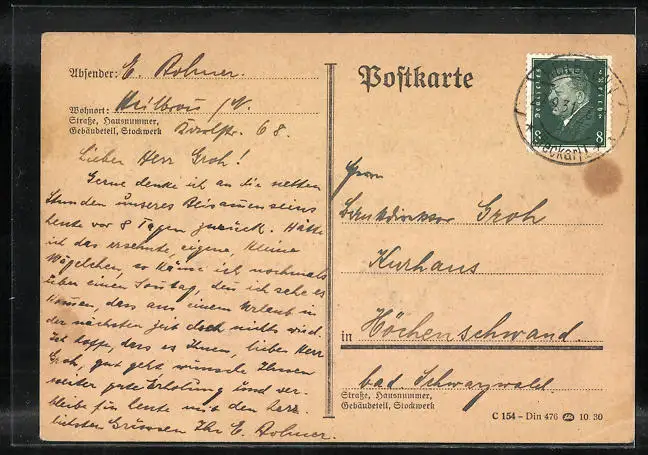 Absender: E. Rohner.
Wohnort: Heilbronn /N.
Straße, Hausnummer,
Gebäudeteil, Stockwerk
68.
Lieber Herr Groh!
Gerne denke ich an die netten
Stunden unseres Beisammenseins
heute vor 8 Tagen zurück. Hätte
ich das ersehnte, eigene, kleine
Wägelchen, so käme ich nochmals
über einen Sonntag, denn ich sehe es
kommen, dass aus einem Urlaub in
der nächsten Zeit doch nichts wird.
Ich hoffe, dass es Ihnen, lieber Herr
Groh, gut geht, wünsche Ihnen
weiter gute Erholung und ver-
bleibe für heute mit den herz-
lichsten Grüssen Ihr E. Rohner.
Postkarte
Deutsches Reich
8 8
Herrn
Bankdirektor Groh
Kurhaus
in Höchenschwand.
bad. Schwarzwald.
Straße, Hausnummer,
Gebäudeteil, Stockwerk
C 154 – Din 476 10. 30